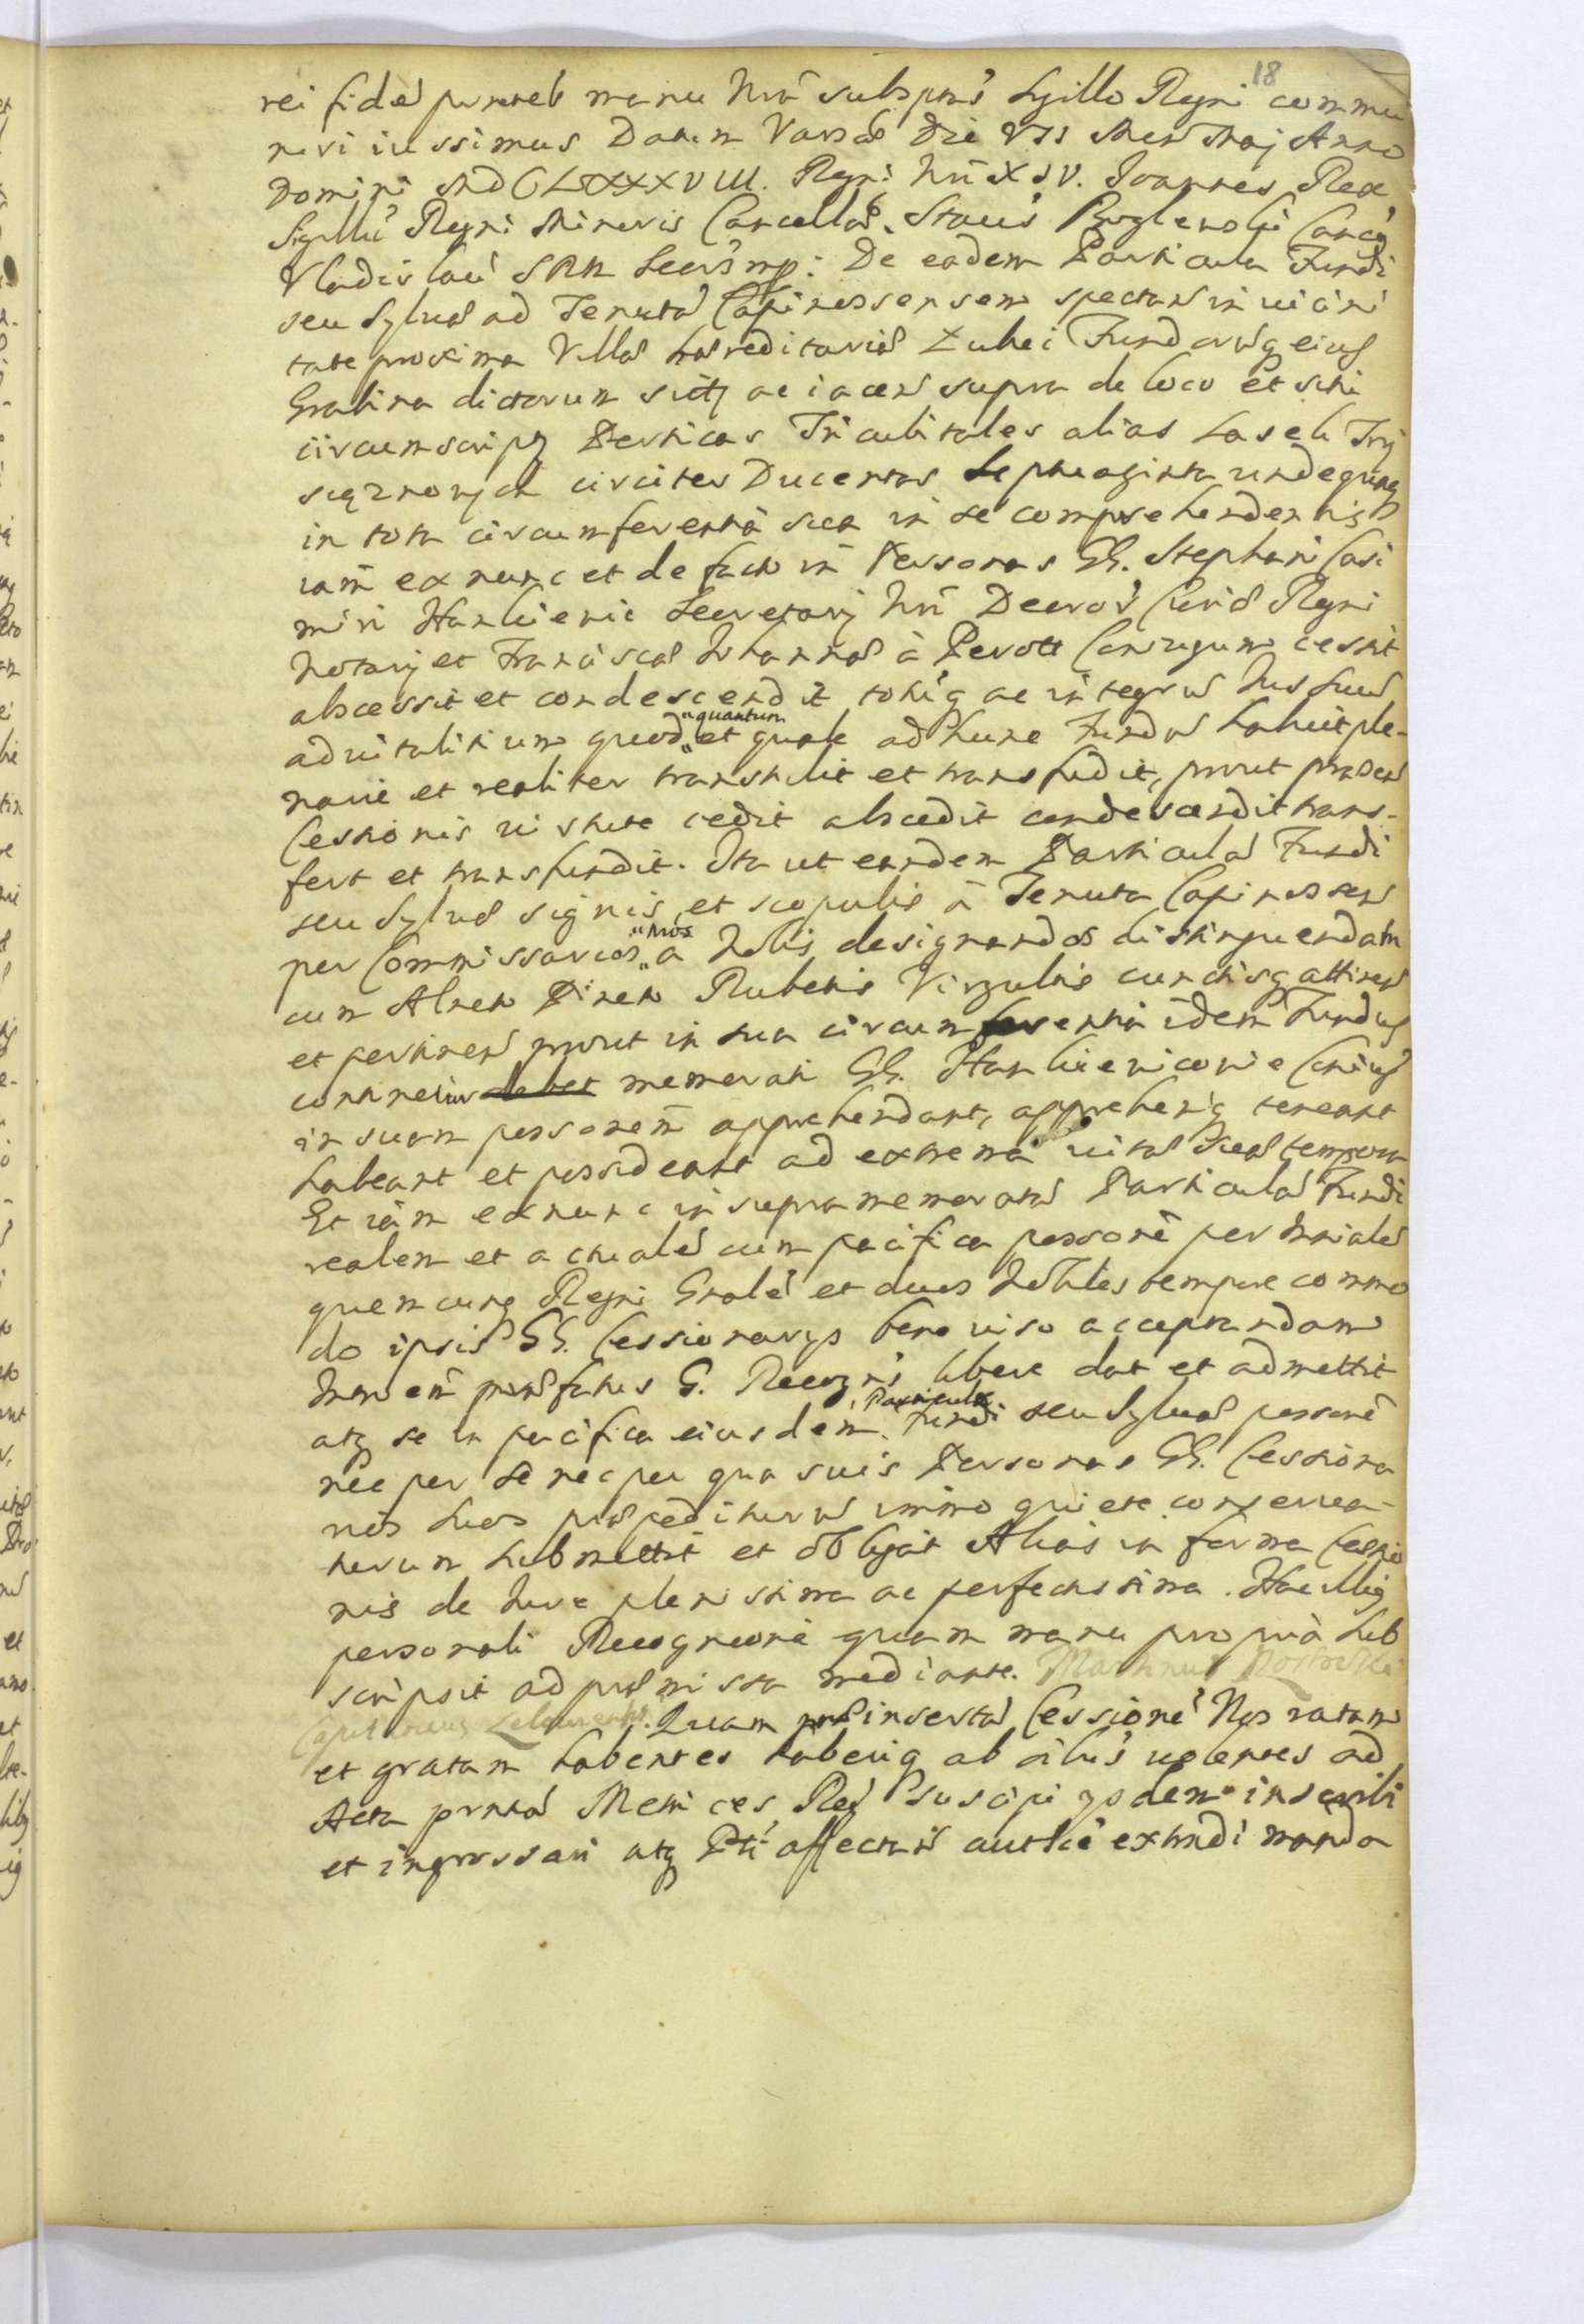 18
rei fidē pñtes manu Nrā subsptas Sigillo Regni commu
niri iussimus Datum Varsae Die VII Mens Maj Anno
Domini MDCLXXXVIII. Regni Nrī XIV. Joannes Rex
Sigillū Regni Minoris Cancellae. Staūs
Vladislau mp: De eadem Particula Fundi
seu Sylvae ad Tenutā Capinossensem spectan in vicini
tate proxima Villae haereditariae Zubei Fundorūq eius
Grabina dictorum sitq ac iacen supra de loco et situ
circumscriptq Perticas Tricubitales alias Laseh Trz
sięznowych circiter Ducentas Septuaginta undequinq
in tota circumferentia sua in se comprehendentis
iam ex nunc et de facto in Personas GG. Stephani Casi
miri Hankiewic Secretarij Nrī Decror Curiae Regni
Notarij et Franciscae Johannae à Perott Conjugum cessit
abscessit et condescendit totūq ac integrum Jus Suum
advitalitium quod "quantum" et quale ad hunc Fundum habuit ple-
narie et realiter transtulit et transfudit, prout praesen
Cessionis virtute cedit abscedit condescendit trans-
fert et transfundit. Ita ut eandem Particulae Fundi
seu Sylvae signis et scopulis à Tenuta Capinossen
per Commissarios "Nros" a Nobis designandos distinguendam
cum Alnetis Pinetis Rubetis Virgultis cunctisq attinen
et pertinen prout in sua circumferentia idem Fundus
continetur memorati GG. Hankiewicowie Coniug
in suam possionem apprehendant, apprehensq teneant
habeant et possideant ad extrema vitae suae tempora
Et iam ex nunc in supramemoratae Particulae Fundi
realem et actualē cum pacifica possione per Mnialē
quemcunq Regni Gnalē et duos Nobiles tempore commo
do ipsis GG. Cessionarijs bene viso acceptandam
Intromēm praefatus G. Recogns libere dat et admittit
atq se in pacifica eiusdem Particulae Fundi seu Sylvae possione
nec per se nec per qua suis Personas GG. Cessiona
rios suos praepediturum immo quiete conserva-
turum submittit et obligat Alias in forma Cessio
nis de Jure plenissima ac perfectissima. Hac Illius
personali Recognitione quam manu propria sub
scripsit ad praemissa mediante. Martinus
Capitaneus Quam praeinsertā Cessionē Nos ratam
et gratam habentes haberiq ab oibus volentes ad
Acta pntia Metrices Reg suscipi ijsdem inscribi
et ingrossari atq Pti affectan authce extradi manda